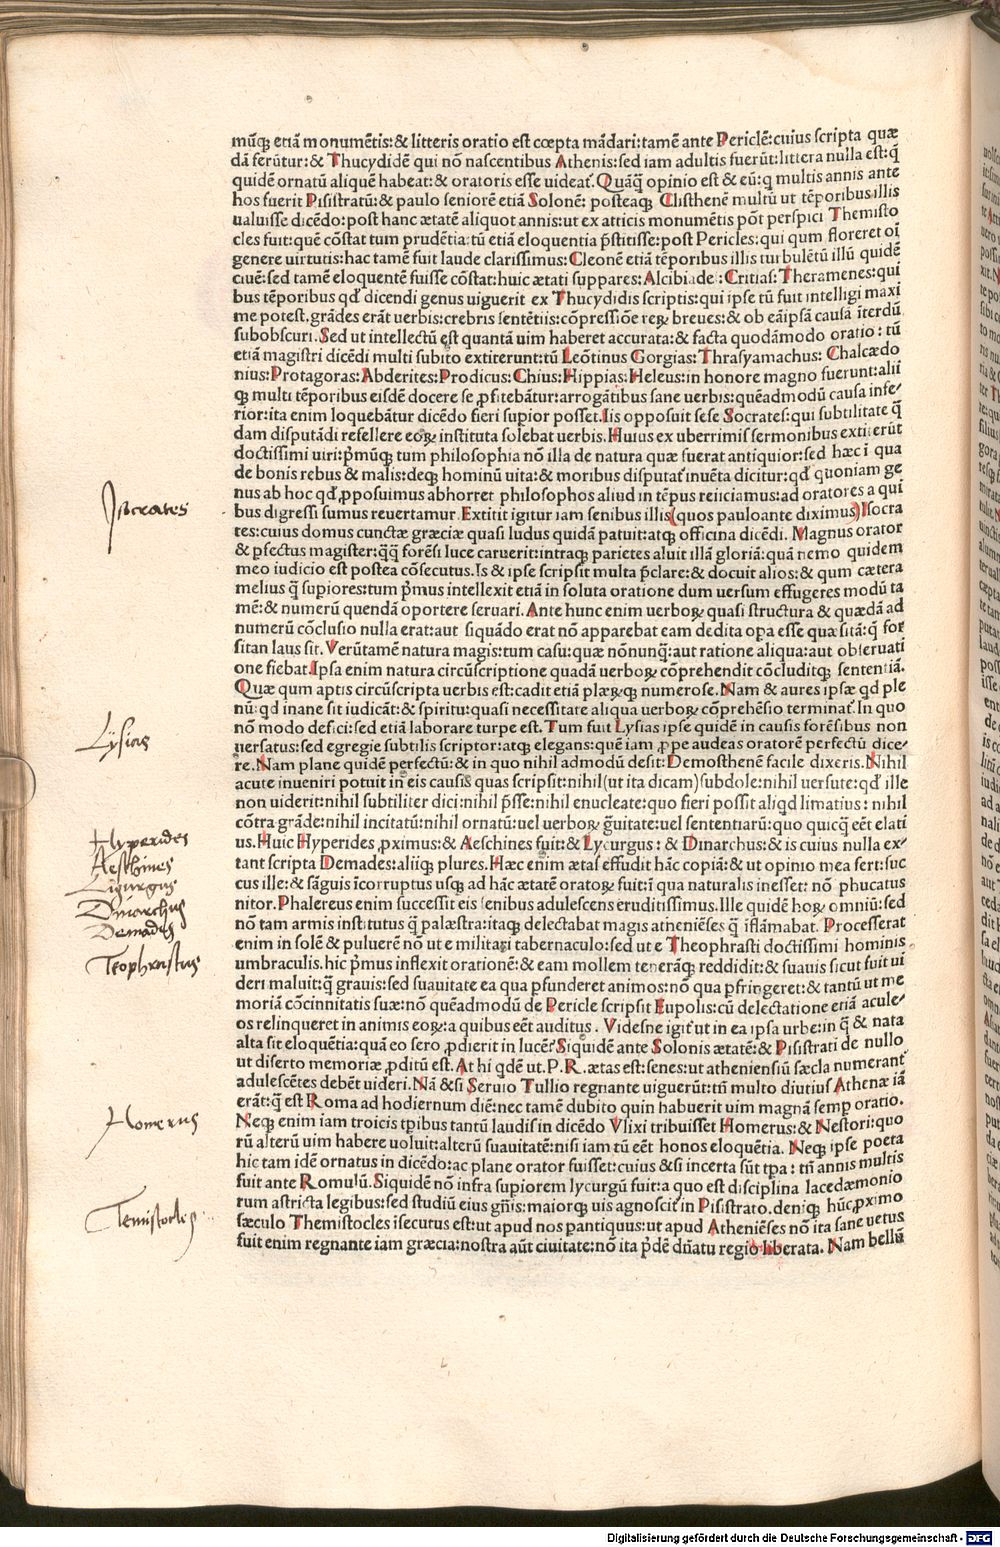 mũq etiã monumẽtis:& litteris oratio est cœpta mãdari:tamẽ ante Periclẽ:cuius scripta quæ
dã ferũtur:& Thucydidẽ qui nõ nascentibus Athenis:sed iam adultis fuerũt:littera nulla est:q̃
quidẽ ornatũ aliquẽ habeat:& oratoris esse uideat᷑.Quãq̃ opinio est & eũ:q multis annis ante
hos fuerit Pisistratũ:& paulo seniorẽ etiã Solonẽ: posteaqꝫ Clisthenẽ multũ ut tẽporibus illis
ualuisse dicẽdo:post hanc ætatẽ aliquot annis:ut ex atticis monumẽtis põt perspici Themisto
cles fuit:quẽ cõstat tum prudẽtia:tũ etiã eloquentia p̃stitisse:post Pericles:qui qum floreret oĩ
genere uirtutis:hac tamẽ fuit laude clarissimus:Cleonẽ etiã tẽporibus illis turbulẽtũ illũ quidẽ
ciuẽ:sed tamẽ eloquentẽ fuisse cõstat:huic ætati suppares:Alcibiades:Critias:Theramenes:qui
bus tẽporibus qđ dicendi genus uiguerit ex Thucydidis scriptis:qui ipse tũ fuit intelligi maxi
me potest.grãdes erãt uerbis:crebris sentẽtiis:cõpressiõe reꝝ breues:& ob eãipsã causã ĩterdũ
subobscuri.Sed ut intellectũ est quantã uim haberet accurata:& facta quodãmodo oratio: tũ
etiã magistri dicẽdi multi subito extiterunt:tũ Leõtinus Gorgias:Thrasyamachus: Chalcædo
nius:Protagoras:Abderites:Prodicus:Chius:Hippias:Heleus:in honore magno fuerunt:alii
qꝫ multi tẽporibus eisdẽ docere se ꝓfitebãtur:arrogãtibus sane uerbis:quẽadmodũ causa infe⸗
rior:ita enim loquebãtur dicẽdo fieri supior posset.Iis opposuit sese Socrates:qui subtilitate q̃
dam disputãdi refellere eoꝝ instituta solebat uerbis.Huius ex uberrimis sermonibus extiterũt
doctissimi uiri:p̃mũqꝫ tum philosophia nõ illa de natura quæ fuerat antiquior:sed hæc ĩ qua
de bonis rebus & malis:deqꝫ hominũ uita:& moribus disputat᷑ inuẽta dicitur:qđ quoniam ge
nus ab hoc qđ ꝓposuimus abhorret philosophos aliud in tẽpus reiiciamus:ad oratores a qui
bus digressi sumus reuertamur.Extitit igitur iam senibus illis(quos pauloante diximus)Isocra
tes:cuius domus cunctæ græciæ quasi ludus quidã patuit:atqꝫ officina dicẽdi. Magnus orator
& pfectus magister:q̃q̃ forẽsi luce caruerit:intraqꝫ parietes aluit illã gloriã:quã nemo quidem
meo iudicio est postea cõsecutus.Is & ipse scripsit multa p̃clare:& docuit alios:& qum cætera
melius q̃ supiores:tum p̃mus intellexit etiã in soluta oratione dum uersum effugeres modũ ta
mẽ:& numerũ quendã oportere seruari.Ante hunc enim uerboꝝ quasi structura & quædã ad
numerũ cõclusio nulla erat:aut siquãdo erat nõ apparebat eam dedita opa esse quæsitã:q̃ for
sitan laus sit.Verũtamẽ natura magis:tum casu:quæ nõnunq̃:aut ratione aliqua:aut obseruati
one fiebat.Ipsa enim natura circũscriptione quadã uerboꝝ cõprehendit cõcluditqꝫ sententiã.
Quæ qum aptis circũscripta uerbis est:cadit etiã plærqꝫ numerose.Nam & aures ipsæ qđ ple
nũ:qđ inane sit iudicãt:& spiritu:quasi necessitate aliqua uerboꝝ cõprehẽsio terminat᷑.In quo
nõ modo defici:sed etiã laborare turpe est.Tum fuit Lysias ipse quidẽ in causis forẽsibus non
uersatus:sed egregie subtilis scriptor:atqꝫ elegans:quẽ iam ꝓpe audeas oratorẽ perfectũ dice⸗
re.Nam plane quidẽ perfectũ:& in quo nihil admodũ desit:Demosthenẽ facile dixeris.Nihil
acute inueniri potuit in eis causis quas scripsit:nihil(ut ita dicam)subdole:nihil uersute:qđ ille
non uiderit:nihil subtiliter dici:nihil p̃sse:nihil enucleate:quo fieri possit aliqđ limatius: nihil
cõtra grãde:nihil incitatũ:nihil ornatũ:uel uerboꝝ g̃uitate:uel sententiarũ:quo quicq̃ eẽt elati
us.Huic Hyperides ꝓximus:& Aeschines fuit:& Lycurgus: & Dinarchus:& is cuius nulla ex⸗
tant scripta Demades:aliiqꝫ plures.Hæc enim ætas effudit hãc copiã:& ut opinio mea fert:suc
cus ille:& sãguis ĩcorruptus usqꝫ ad hãc ætatẽ oratoꝝ fuit:ĩ qua naturalis inesset: nõ phucatus
nitor.Phalereus enim successit eis senibus adulescens eruditissimus.Ille quidẽ hoꝝ omniũ:sed
nõ tam armis institutus q̃ palæstra:itaqꝫ delectabat magis atheniẽses q̃ ĩflãmabat. Processerat
enim in solẽ & puluerẽ nõ ut e militari tabernaculo:sed ut e Theophrasti doctissimi hominis
umbraculis.hic p̃mus inflexit orationẽ:& eam mollem tenerãqꝫ reddidit:& suauis sicut fuit ui
deri maluit:q̃ grauis:sed suauitate ea qua pfunderet animos:nõ qua pfringeret:& tantũ ut me
moriã cõcinnitatis suæ:nõ quẽadmodũ de Pericle scripsit Eupolis:cũ delectatione etiã acule⸗
os relinqueret in animis eoꝝ:a quibus eẽt auditus. Videsne igit᷑ ut in ea ipsa urbe:in q̃ & nata
alta sit eloquẽtia:quã eo sero ꝓdierit in lucẽ?Siquidẽ ante Solonis ætatẽ:& Pisistrati de nullo
ut diserto memoriæ ꝓditũ est.At hi qđẽ ut.P.R.ætas est:senes:ut atheniensiũ sæcla numerant᷑
adulescẽtes debẽt uideri.Nã &si Seruio Tullio regnante uiguerũt:tñ multo diutius Athenæ iã
erãt:q̃ est Roma ad hodiernum diẽ:nec tamẽ dubito quin habuerit uim magnã semp oratio.
Neqꝫ enim iam troicis tpibus tantũ laudis in dicẽdo Vlixi tribuisset Homerus:& Nestori:quo
rũ alterũ uim habere uoluit:alterũ suauitatẽ:nisi iam tũ eẽt honos eloquẽtia. Neqꝫ ipse poeta
hic tam idẽ ornatus in dicẽdo:ac plane orator fuisset:cuius &si incerta sũt tpa: tñ annis multis
fuit ante Romulũ.Siquidẽ nõ infra supiorem lycurgũ fuit:a quo est disciplina lacedæmonio
rum astricta legibus:sed studiũ eius gñis:maiorqꝫ uis agnoscit᷑ in Pisistrato.deniqꝫ hũc ꝓximo
sæculo Themistocles ĩsecutus est:ut apud nos pantiquus:ut apud Atheniẽses nõ ita sane uetus
fuit enim regnante iam græcia:nostra aũt ciuitate:nõ ita p̃dẽ dñatu regio liberata. Nam bellũ
Isocrates
Lysias
Hyperides
Aesthines
Ligurgus
Dinarchus
Demades
Teophrastus
Homerus
Temistocles
Digitalisierung gefördert durch die Deutsche Forschungsgemeinschaft - DFG